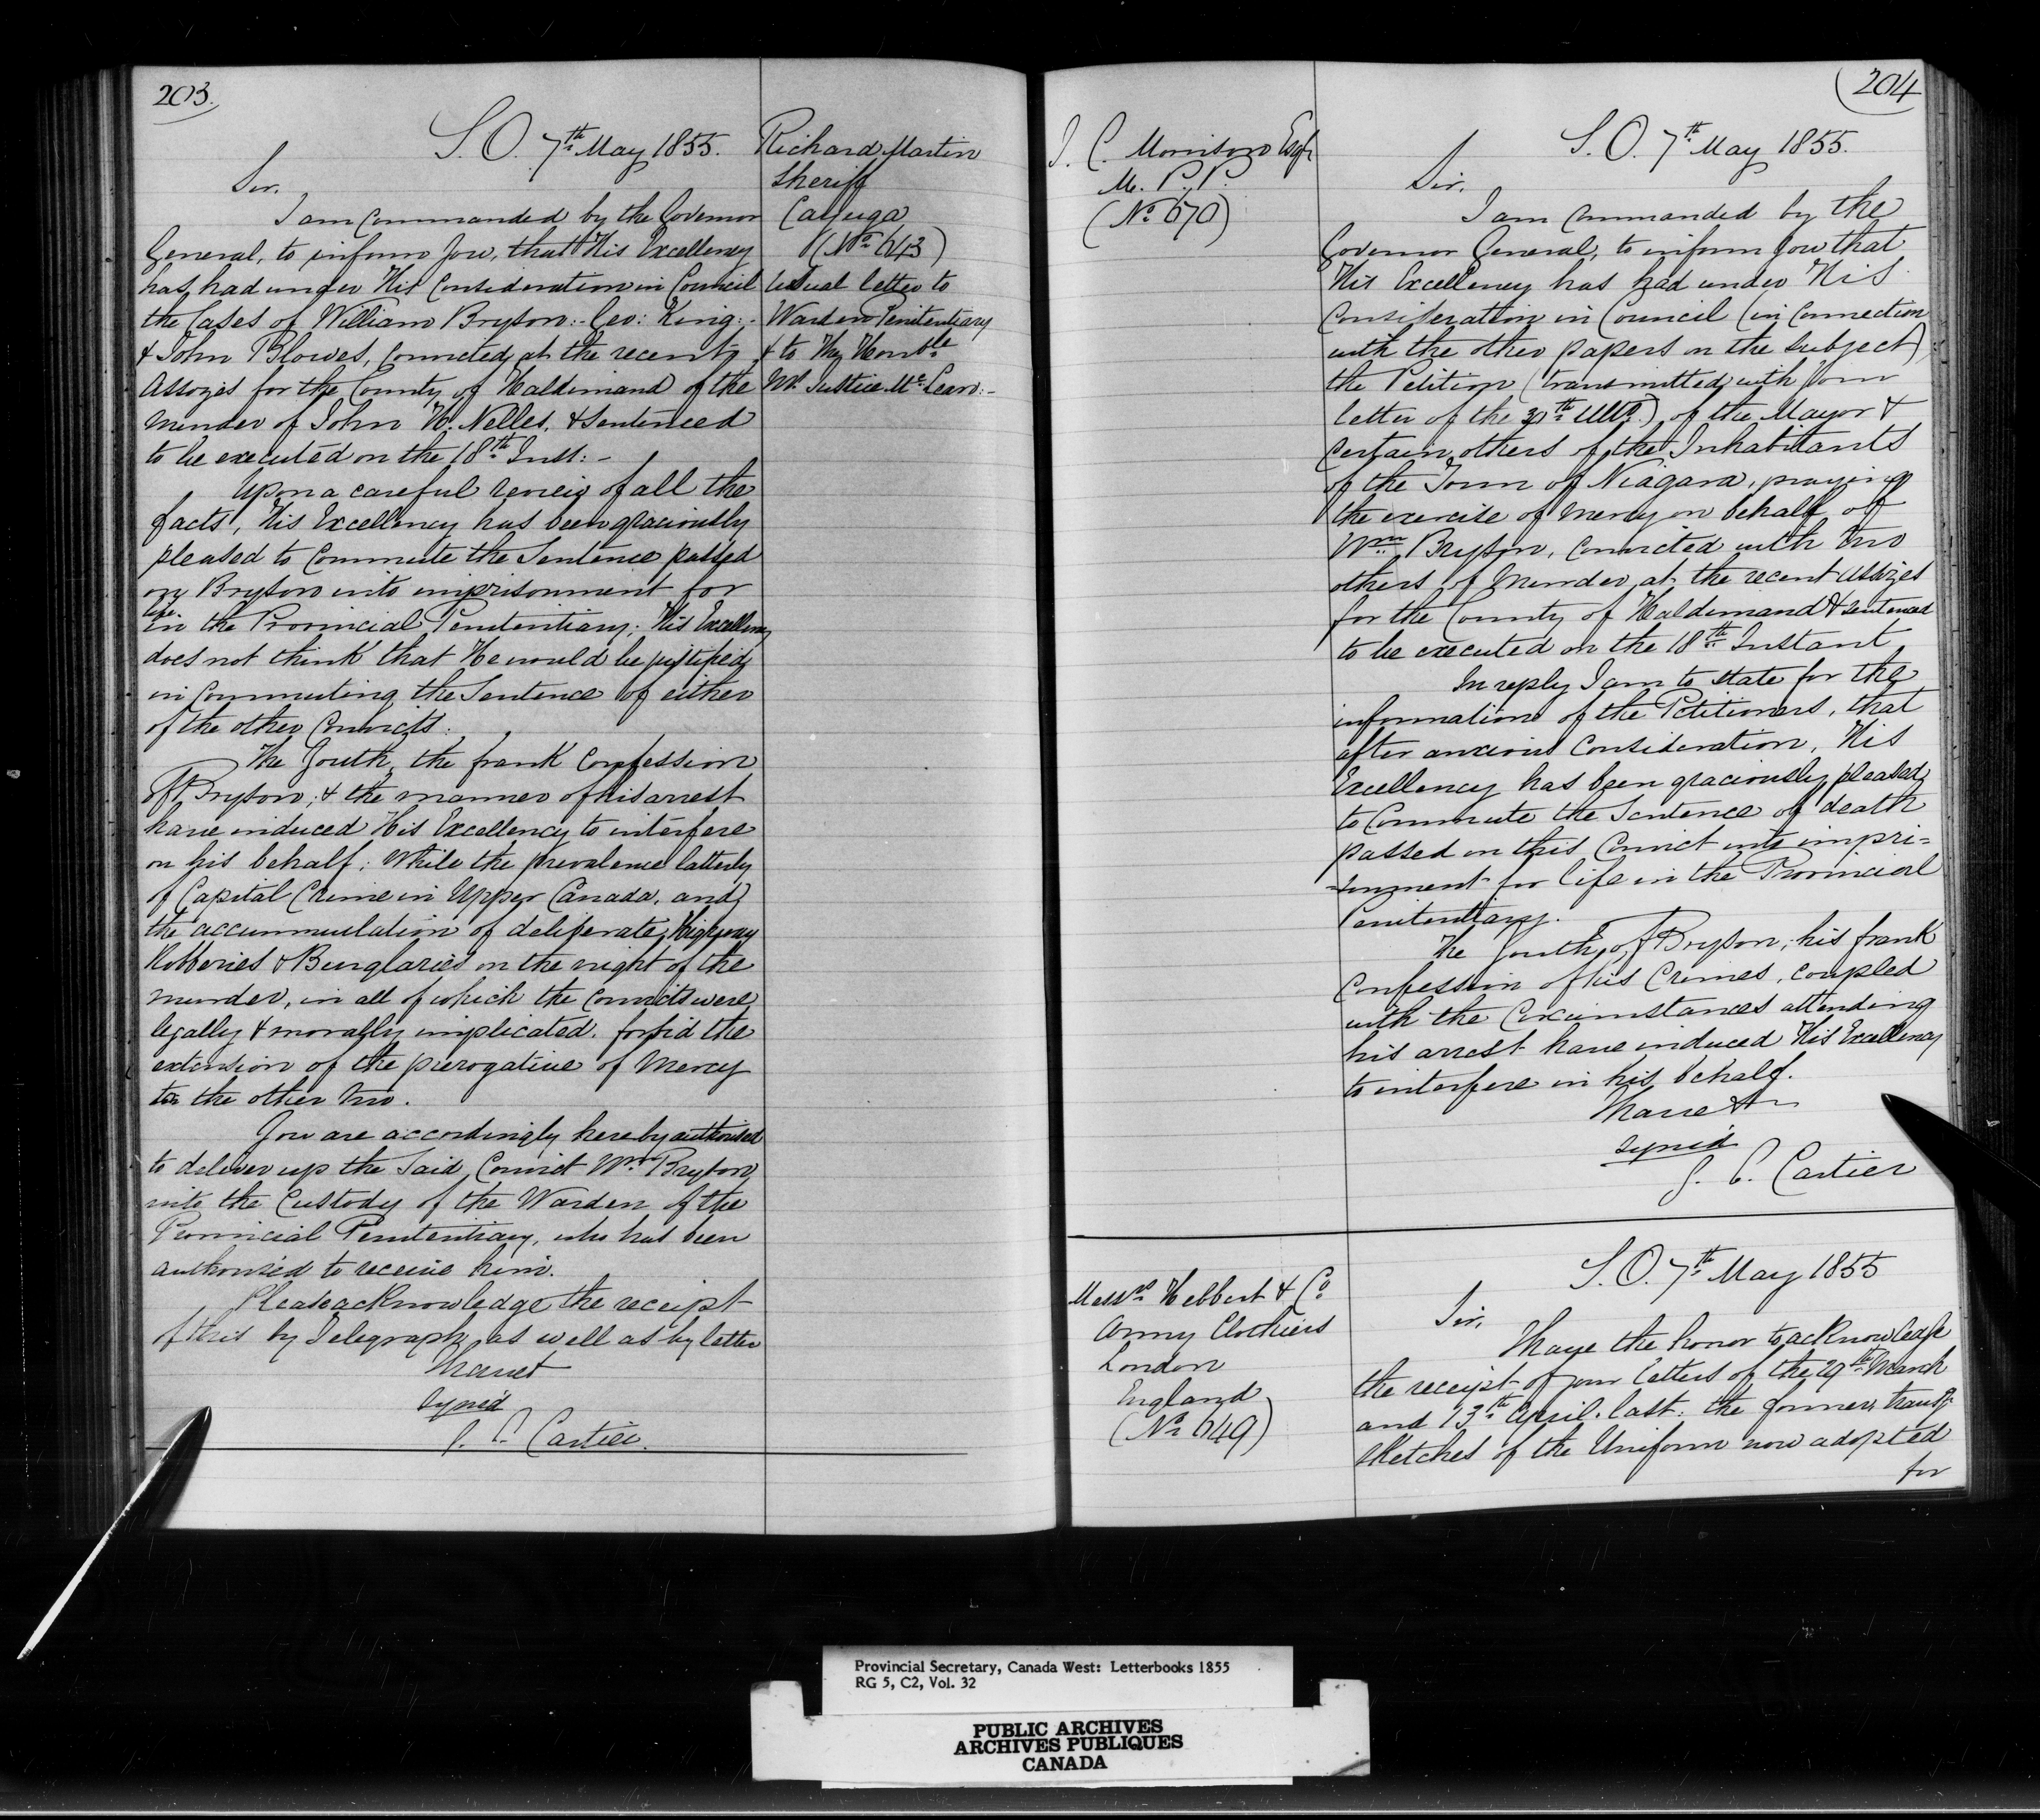 203.
S. O. 7th May 1855.
Sir.
I am commanded by the Governor
General, to inform you, that His Excellency
has had under His Consideration in Council
the Cases of William Bryson:- Geo: King:-
& John Blowes, convicted at the recent
Assizes for the County of Haldimand of the
Murder of John H. Nelles, & Sentenced
to be executed on the 18th Inst:-
Upon a careful review of all the
facts, His Excellency has been graciously
pleased to Commute the Sentence passed
on Bryson into imprisonment for
life
in the Provincial Penitentiary; His Excellency
does not think that He would be justified
in Commuting the Sentence of either
of the other Convicts.
The Youth, the frank Confession
of Bryson; & the manner of his arrest
have induced His Excellency to interfere
on his behalf; While the prevalence latterly
of Capital Crime in Upper Canada, and
the accummulation of deliberate Highway
Robberies & Burglaries on the night of the
murder, in all of which the Convicts were
legally & morally implicated. forbid the
extension of the prerogative of Mercy
to the other two.
You are accordingly hereby authorised
to deliver up the said Convict Wm Bryson
into the Custody of the Warden of the
Provincial Penitentiary, who has been
authorised to receive him.
Please acknowledge the receipt
of this by Telegraph, as well as by letter
I have &
signed
G. E. Cartier.
Richard Martin
Sheriff
Cayuga
(No 643)
Usual letter to
Warden Penitentiary
& to The Honble
Mr Justice McLean:-
204
J. C. Morrison Esqr
M. P. P.
(No 670)
S. O. 7th May 1855.
Sir,
I am commanded by the
Governor General, to inform you that
His Excellency has had under His
Consideration in Council (in Connection
with the other papers on the subject)
the Petition (transmitted with your
letter of the 30th Ulto) of the Mayor &
certain others of the Inhabitants
of the Town of Niagara, praying
the exercise of Mercy on behalf of
Wm Bryson, convicted with two
others of Murder, at the recent Assizes
for the County of Haldimand & sentenced
to be executed on the 18th Instant
In reply I am to state for the
information of the Petitioners, that
after anxious Consideration, His
Excellency has been graciously pleased
to Commute the Sentence of death
passed on this Convict into impri=
=sonment for life in the Provincial
Penitentiary.
The Youth of Bryson, his frank
Confession of his Crimes, coupled
with the Circumstances attending
his arrest have induced His Excellency
to interfere in his behalf.
I have &
signed
G. E. Cartier
Messrs Hebbert & Co
Army Clothiers
London
England
(No 649)
S. O. 7th May 1855
Sir,
I have the honor to acknowledge
the receipt of your letters of the 29th March
and 13th April last: the former transg
sketches of the Uniform now adopted
for
Provincial Secretary, Canada West: Letterbooks 1855
RG 5, C2, Vol. 32
PUBLIC ARCHIVES
ARCHIVES PUBLIQUES
CANADA